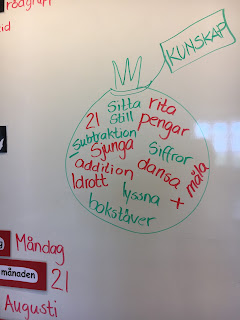 rödgrupp
tid
KUNSKAP
Sitta rita
21 Still pengar
Subtraktion
Sjunga Siffror
addition dansa
Idrott + måla
lyssna
bokstäver
Måndag
månaden 21
Augusti